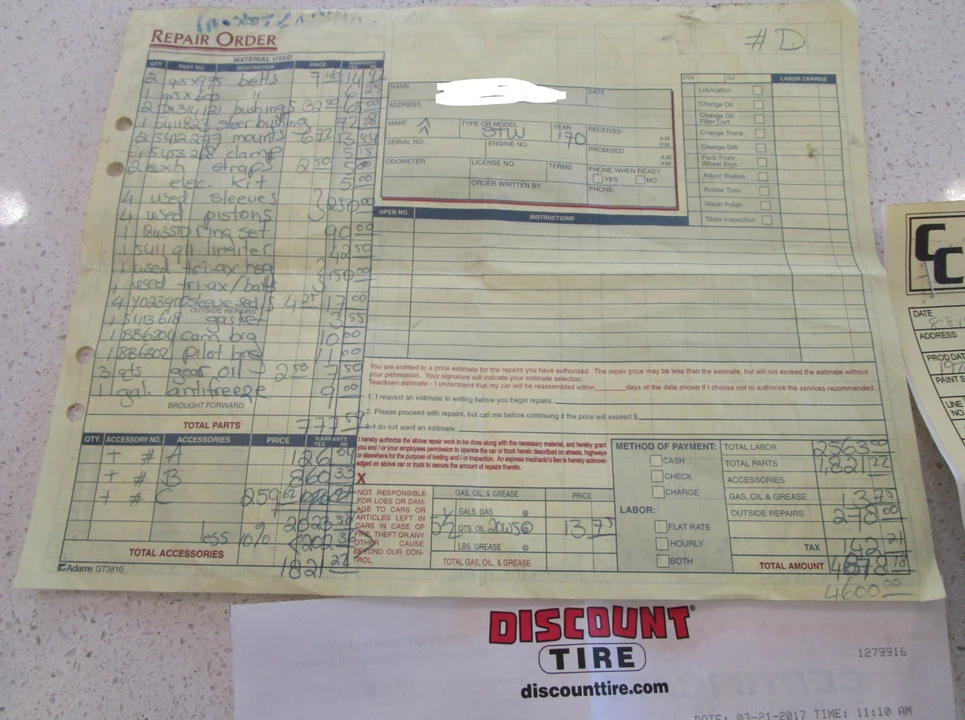 # D
REPAIR ORDER
MATERIAL USED
QTY. PART NO. DESCRIPTION PRICE WARRANTY YES NO
2 belts 7 46 14 92
1 "
2 bushings 32 50 65 00
1 steer bushing 72
2 mounts 6 72 13 44
1 clamp
2 straps 2 50 5 00
elec. kit 5 00
4 used sleeves
4 used pistons 250 00
1 ring set 90 00
1 42 50
1 used tri-ax hsg
1 used tri-ax/ 150 00
4 4 25 17 00
OUTSIDE REPAIRS
1 gasket 3 55
1 cam brg 10 00
1 pilot brg 11 00
3 qts gear oil 2 50 7 50
1 gal. antifreeze 9 00
BROUGHT FORWARD
TOTAL PARTS 777 59
QTY. ACCESSORY NO. ACCESSORIES PRICE WARRANTY YES NO
+ # A 126 00
+ # B 860 33
+ # C 259 62
2023 54
less 10% 202 35
TOTAL ACCESSORIES 1821 22
Adams GT3810
NAME DATE
ADDRESS
MAKE TYPE OR MODEL STW YEAR '70 RECEIVED A.M. P.M.
SERIAL NO. ENGINE NO. PROMISED A.M. P.M.
ODOMETER LICENSE NO. TERMS PHONE WHEN READY
YES NO
ORDER WRITTEN BY PHONE
LABOR CHARGE
Lubrication
Change Oil
Change Oil Filter Cart.
Change Trans.
Change Diff.
Pack Front Wheel Brgs.
Adjust Brakes
Rotate Tires
Wash Polish
State Inspection
OPER NO. INSTRUCTIONS
You are entitled to a price estimate for the repairs you have authorized. The repair price may be less than the estimate, but will not exceed the estimate without
your permission. Your signature will indicate your estimate selection.
Teardown estimate - I understand that my car will be reassembled within days of the date shown if I choose not to authorize the services recommended.
1. I request an estimate in writing before you begin repairs.
2. Please proceed with repairs, but call me before continuing if the price will exceed $
3. I do not want an estimate.
I hereby authorize the above repair work to be done along with the necessary material, and hereby grant
you and / or your employees permission to operate the car or truck herein described on streets, highways
or elsewhere for the purpose of testing and / or inspection. An express mechanic's lien is hereby acknowl-
edged on above car or truck to secure the amount of repairs thereto.
X
NOT RESPONSIBLE
FOR LOSS OR DAM-
AGE TO CARS OR
ARTICLES LEFT IN
CARS IN CASE OF
FIRE, THEFT OR ANY
OTHER CAUSE
BEYOND OUR CON-
TROL.
GAS, OIL & GREASE PRICE
GALS. GAS @
QTS. OIL 20W50 @ 13 75
LBS. GREASE @
TOTAL GAS, OIL & GREASE
METHOD OF PAYMENT:
CASH
CHECK
CHARGE
LABOR:
FLAT RATE
HOURLY
BOTH
TOTAL LABOR 2563 00
TOTAL PARTS 1,821 22
ACCESSORIES
GAS, OIL & GREASE 13 75
OUTSIDE REPAIRS 278 00
TAX 142 21
TOTAL AMOUNT 4818 18
4600 00
CC
DATE
ADDRESS
DISCOUNT
TIRE
discounttire.com
1279916
DATE: 03-21-2017 TIME: 11:10 AM